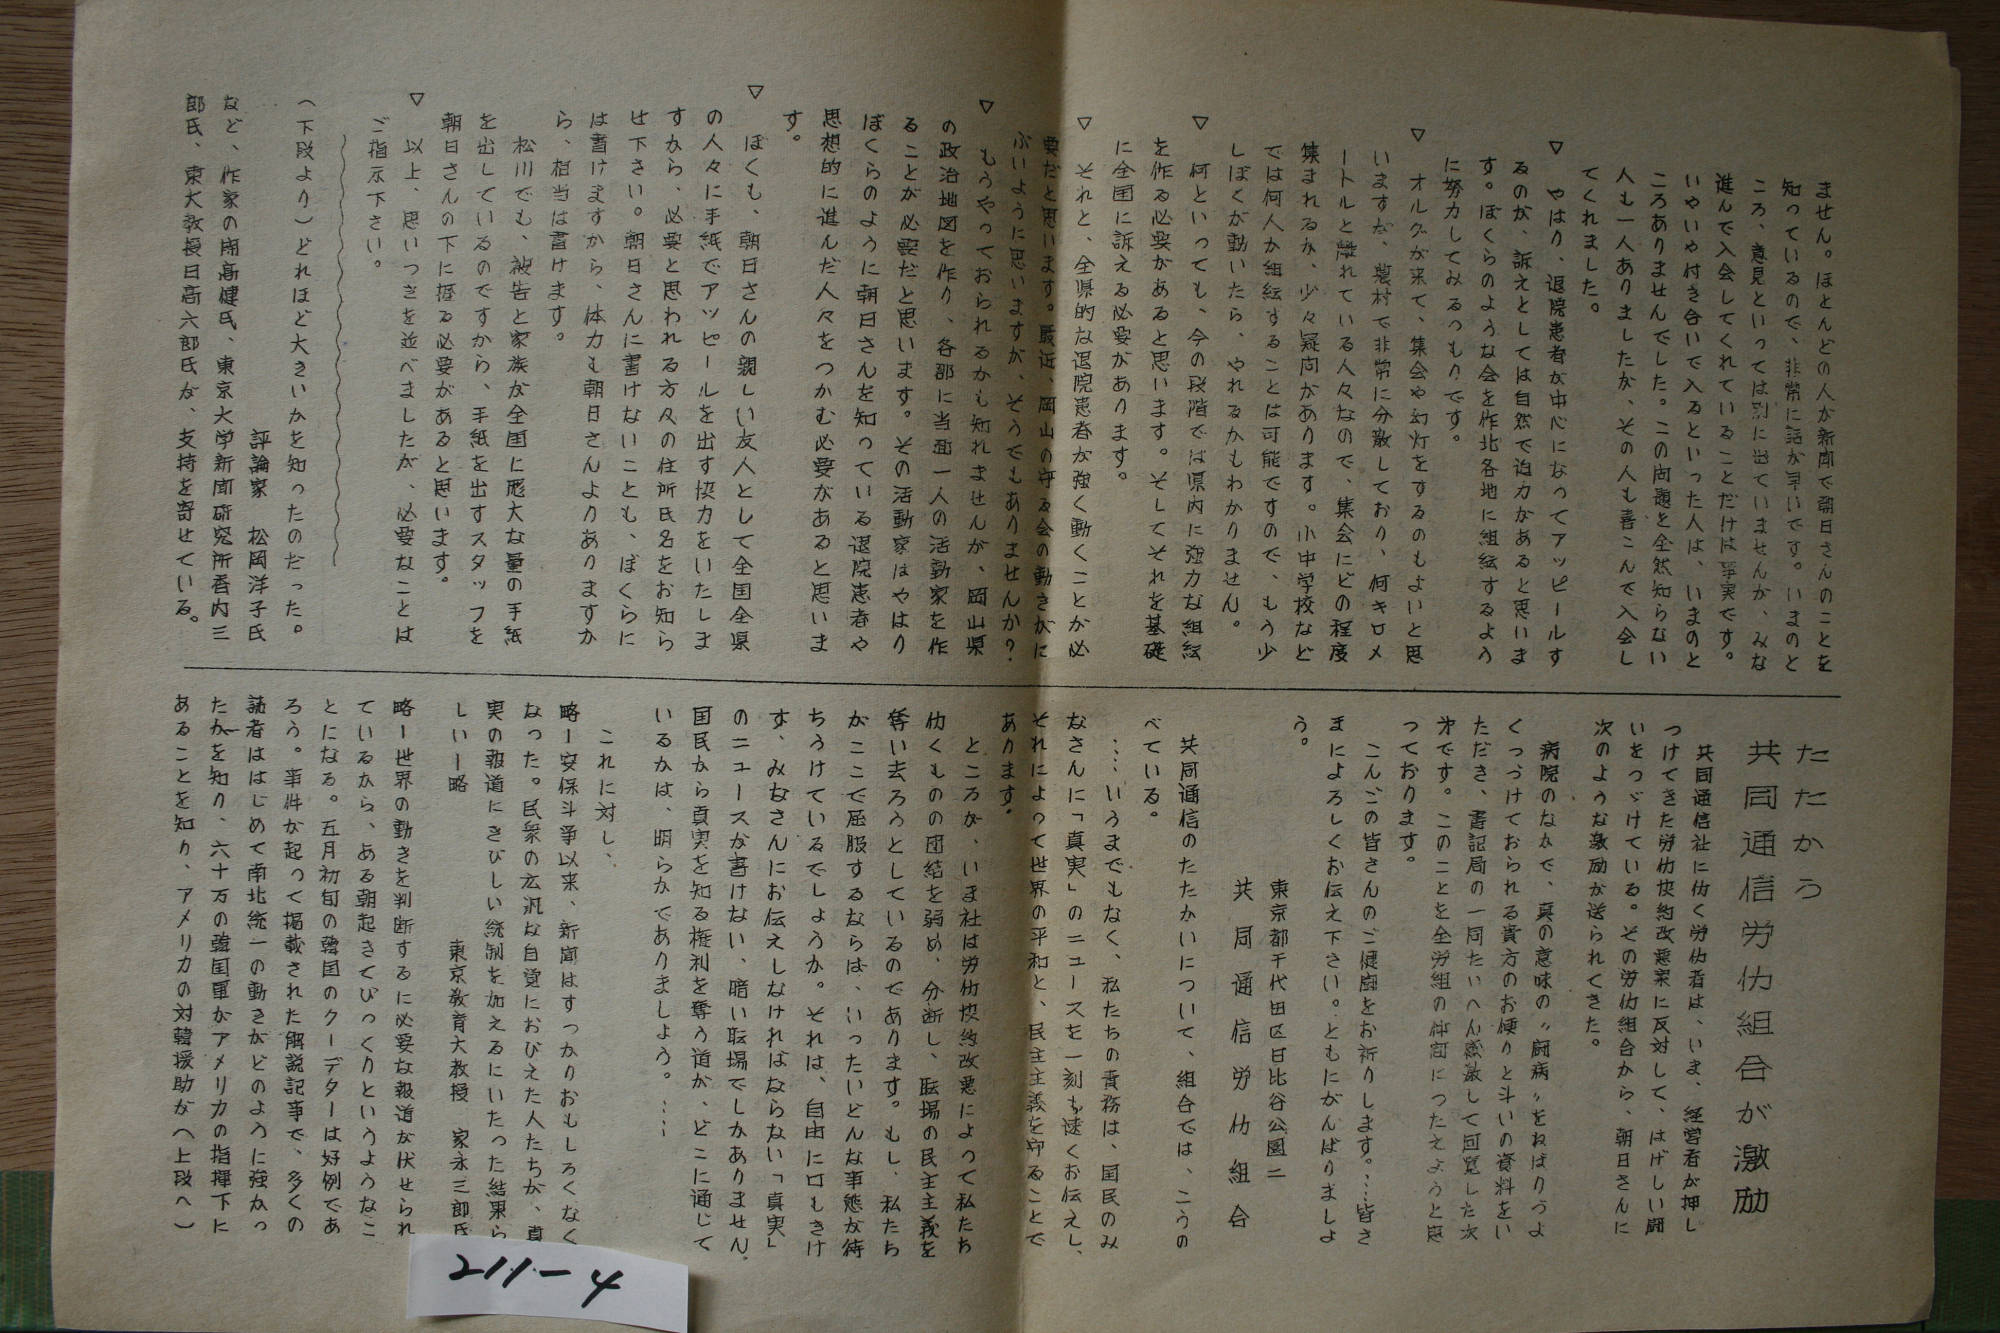 ません。ほとんどの人が新聞で朝日さんのことを
知っているので、非常に話が早いです。いまのと
ころ、意見といっては別に出ていませんが、みな
進んで入会してくれていることだけは事実です。
いやいや付き合いで入るといった人は、いまのと
ころありませんでした。この問題と全然知らない
人も一人ありましたが、その人も喜こんで入会し
てくれました。
▽ やはり、退院患者が中心になってアッピールす
るのが、訴えとしては自然で迫力があると思いま
す。ぼくらのような会を作北各地に組织するよう
に努力してみるつもりです。
▽ オルグが来て、集会や幻灯をするのもよいと思
いますが、農村で非常に分散しており、何キロメ
ートルと離れている人々なので、集会にどの程度
集まれるか、少々疑问があります。小中学校など
では何人か組织することは可能ですので、もう少
しぼくが動いたら、やれるかもわかりません。
▽ 何といっても、今の段階では県内に強力な組织
を作る必要があると思います。そしてそれを基礎
に全国に訴える必要があります。
▽ それと、全県的な退院患者が強く動くことが必
要だと思います。最近、岡山の守る会の動きがに
ぶいように思いますが、そうでもありませんか?
▽ もうやっておられるかも知れませんが、岡山県
の政治地図を作り、各部に当面一人の活動家を作
ることが必要だと思います。その活動家はやはり
ぼくらのように朝日さんを知っている退院患者や
思想的に進んだ人々をつかむ必要があると思いま
す。
▽ ぼくも、朝日さんの親しい友人として全国全県
の人々に手紙でアッピールを出す協力をいたしま
すから、必要と思われる方々の住所氏名をお知ら
せ下さい。朝日さんに書けないことも、ぼくらに
は書けますから、体力も朝日さんよりありますか
ら、相当は書けます。
松川でも、被告と家族が全国に厖大な量の手紙
を出しているのですから、手紙を出すスタッフを
朝日さんの下に握る必要があると思います。
▽ 以上、思いつきを並べましたが、必要なことは
ご指示下さい。
(下段より)どれほど大きいかを知ったのだった。
評論家 松岡洋子氏
など、作家の開高健氏、東京大学新聞研究所香内三
郎氏、東大教授日高六郎氏が、支持を寄せている。
たたかう
共同通信労仂組合が激励
共同通信社に仂く労仂者は、いま、経営者が押し
つけてきた労仂协約改悪案に反対して、はげしい闘
いをつづけている。その労仂組合から、朝日さんに
次のような激励が送られてきた。
病院のなかで、真の意味の〝闘病〟をねばりづよ
くつづけておられる貴方のお便りと斗いの資料をい
ただき、書記局の一同たいへん感激して回覧した次
才です。このことを全労組の仲间につたえようと思
っております。
こんごの皆さんのご健闘をお祈りします。……皆さ
まによろしくお伝え下さい。ともにがんばりましょ
う。
東京都千代田区日比谷公園二
共同通信労仂組合
共同通信のたたかいについて、組合では、こうの
べている。
……いうまでもなく、私たちの責務は、国民のみ
なさんに「真実」のニュースを一刻も速くお伝えし、
それによって世界の平和と、民主主義を守ることで
あります。
ところが、いま社は労仂协約改悪によって私たち
仂くものの団結を弱め、分断し、职場の民主主義を
奪い去ろうとしているのであります。もし、私たち
がここで屈服するならば、いったいどんな事態が待
ちうけているでしょうか。それは、自由に口もきけ
ず、みなさんにお伝えしなければならない「真実」
のニュースが書けない、暗い职場でしかありません。
国民から真実を知る権利を奪う道が、どこに通じて
いるかは、明らかでありましよう。……
これに対し、
略ー安保斗争以来、新聞はすっかりおもしろくなく
なった。民衆の広汎な自覚におびえた人たちが、真
実の報道にきびしい統制を加えるにいたった結果ら
しいー略
東京教育大教授 家永三郎氏
略ー世界の動きを判断するに必要な報道が伏せられ
ているから、ある朝起きてびっくりというようなこ
とになる。五月初旬の韓国のクーデターは好例であ
ろう。事件が起って掲載された解説記事で、多くの
読者ははじめて南北統一の動きがどのように強かっ
たかを知り、六十万の韓国軍がアメリカの指揮下に
あることを知り、アメリカの対韓援助が(上段へ)
211-4